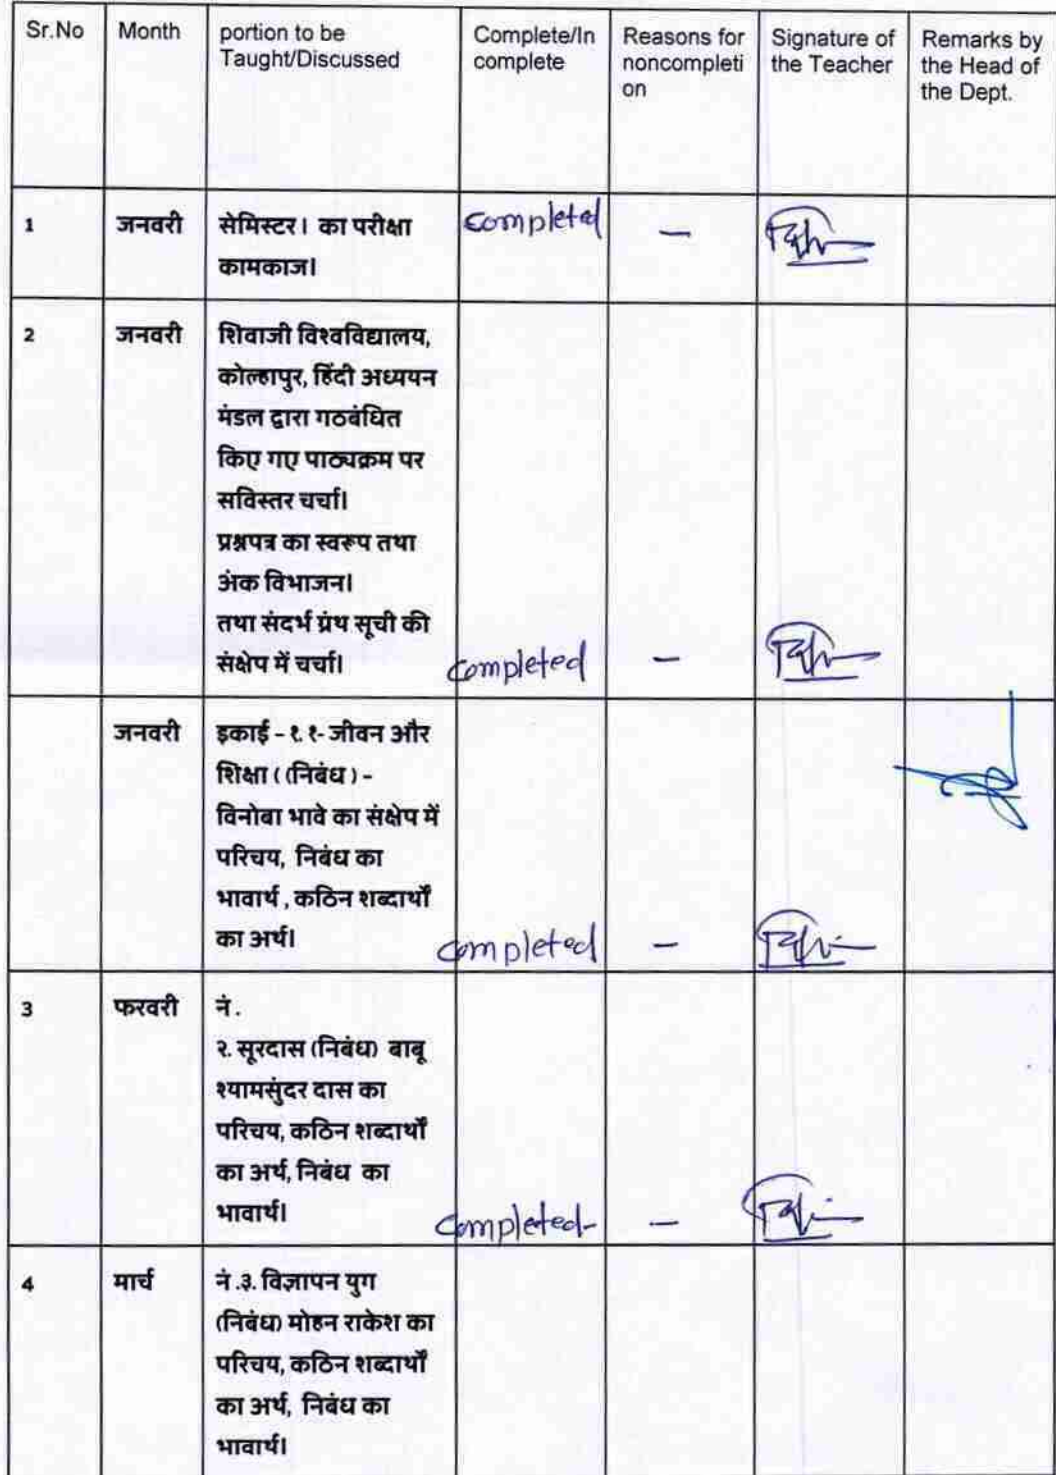 Sr.No Month portion to be Complete/In Reasons for Signature of Remarks by
Taught/Discussed complete noncompleti the Teacher the Head of
on the Dept.
1 जनवरी सेमिस्टर। का परीक्षा completed –
कामकाज।
2 जनवरी शिवाजी विश्वविद्यालय,
कोल्हापुर, हिंदी अध्ययन
मंडल द्वारा गठबंधित
किए गए पाठ्यक्रम पर
सविस्तर चर्चा।
प्रश्नपत्र का स्वरूप तथा
अंक विभाजन।
तथा संदर्भ ग्रंथ सूची की
संक्षेप में चर्चा। completed –
जनवरी इकाई - १. १- जीवन और
शिक्षा ( (निबंध ) -
विनोबा भावे का संक्षेप में
परिचय, निबंध का
भावार्थ , कठिन शब्दार्थों
का अर्थ। completed –
3 फरवरी नं .
२. सूरदास (निबंध) बाबू
श्यामसुंदर दास का
परिचय, कठिन शब्दार्थों
का अर्थ, निबंध का
भावार्थ। completed- –
4 मार्च नं .३. विज्ञापन युग
(निबंध) मोहन राकेश का
परिचय, कठिन शब्दार्थों
का अर्थ, निबंध का
भावार्थ।